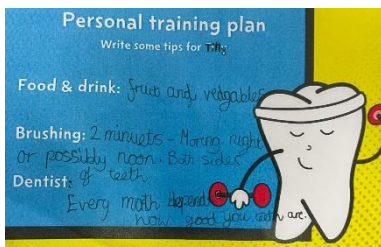 Personal training plan
Write some tips for Tilly
Food & drink: fruit and vedgables
Brushing: 2 minuets - Morning night
or possibly noon. Both sides
of teeth
Dentist:
Every moth depends
how good you teeth are.